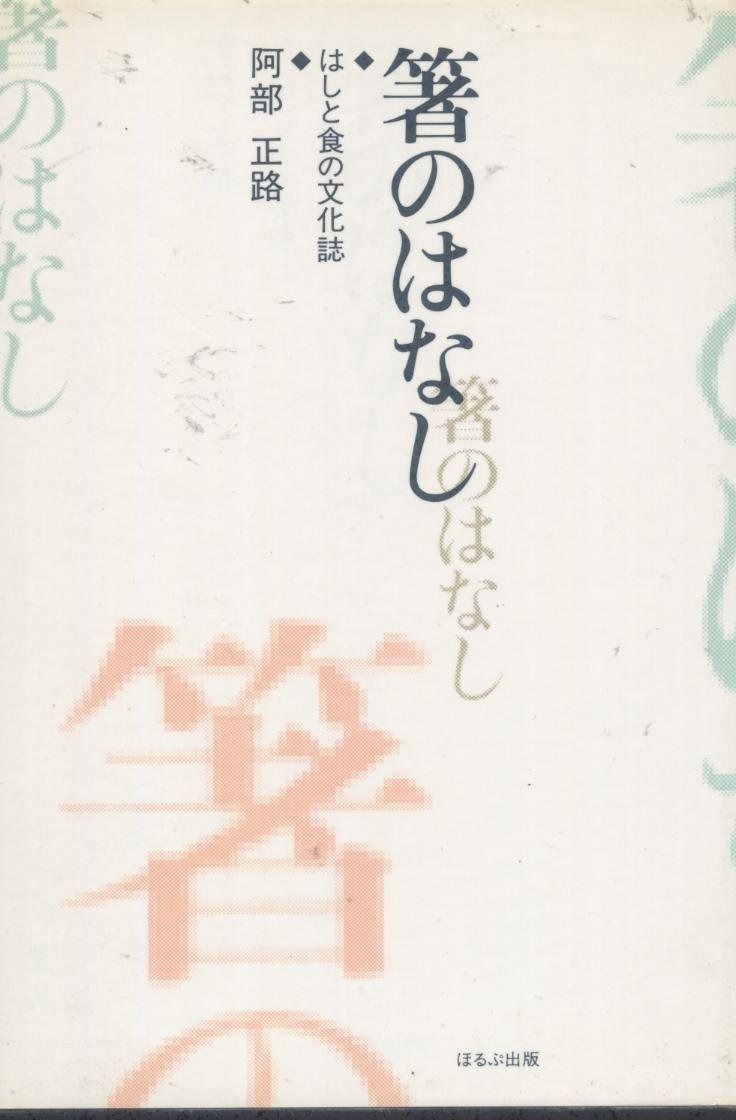 箸のはなし
◆はしと食の文化誌
◆阿部 正路
箸のはなし
箸のはなし
箸の
ほるぷ出版